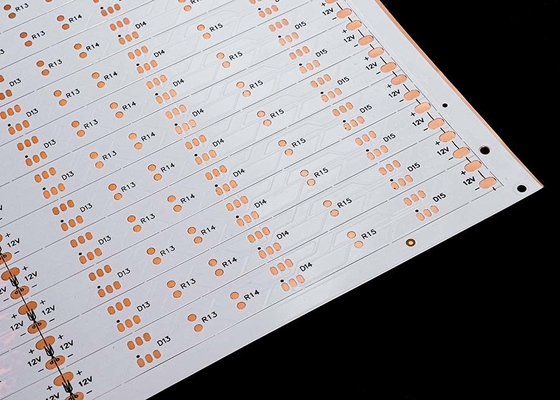 R13 R14 D14 R15 D15 12V
D13 R13 R14 D14 R15 D15 12V
D13 R13 R14 D14 R15 D15 12V
D13 R13 R14 D14 R15 D15 12V
D13 R13 R14 D14 R15 D15 12V
D13 R13 R14 D14 R15 D15 12V
D13 R13 R14 D14 R15 D15 12V
12V D13 R13 R14 D14 R15 D15 12V
12V D13 R13 R14 D14 R15 D15 12V
12V D13 R13 R14 D14 R15 D15 12V
12V D13 R13 R14 D14